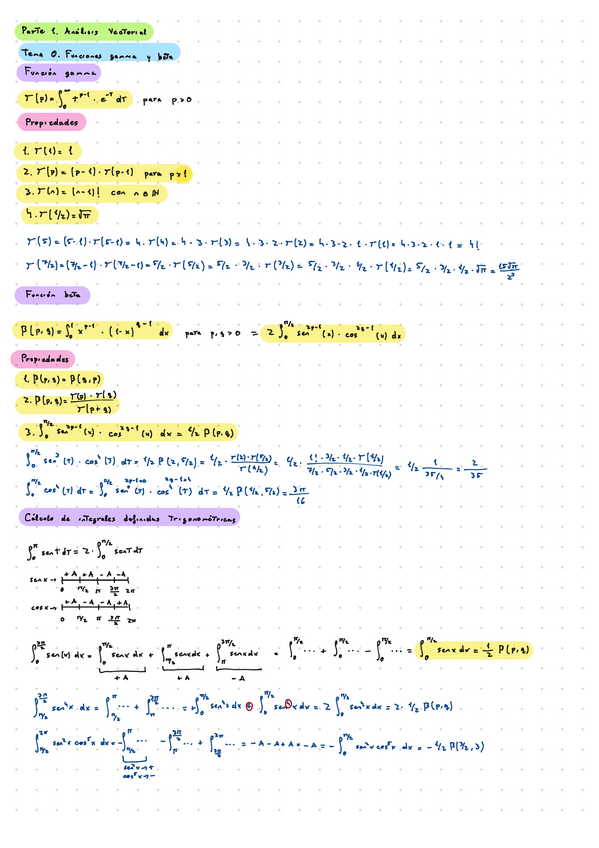 Parte 1. Análisis Vectorial
Tema 0. Funciones gamma y beta
Función gamma
Γ(p) = ∫₀^∞ t^(p-1) · e^(-t) dt para p>0
Propiedades
1. Γ(1) = 1
2. Γ(p) = (p-1) · Γ(p-1) para p>1
3. Γ(n) = (n-1)! con n ∈ ℕ
4. Γ(1/2) = √π
Γ(5) = (5-1) · Γ(5-1) = 4 · Γ(4) = 4 · 3 · Γ(3) = 4 · 3 · 2 · Γ(2) = 4 · 3 · 2 · 1 · Γ(1) = 4 · 3 · 2 · 1 · 1 = 4!
Γ(7/2) = (7/2 - 1) · Γ(7/2 - 1) = 5/2 · Γ(5/2) = 5/2 · 3/2 · Γ(3/2) = 5/2 · 3/2 · 1/2 · Γ(1/2) = 5/2 · 3/2 · 1/2 · √π = 15√π / 2³
Función beta
β(p,q) = ∫₀^1 x^(p-1) · (1-x)^(q-1) dx para p,q > 0 = 2 ∫₀^(π/2) sen^(2p-1)(x) · cos^(2q-1)(x) dx
Propiedades
1. β(p,q) = β(q,p)
2. β(p,q) = Γ(p) · Γ(q) / Γ(p+q)
3. ∫₀^(π/2) sen^(2p-1)(x) · cos^(2q-1)(x) dx = 1/2 β(p,q)
∫₀^(π/2) sen³(t) · cos⁴(t) dt = 1/2 β(2, 5/2) = 1/2 · Γ(2) · Γ(5/2) / Γ(9/2) = 1/2 · 1! · 3/2 · 1/2 · Γ(1/2) / 7/2 · 5/2 · 3/2 · 1/2 · Γ(1/2) = 1/2 · 1 / 35/4 = 2/35
2p-1=0 2q-1=4
∫₀^(π/2) cos⁴(t) dt = ∫₀^(π/2) sen⁰(t) · cos⁴(t) dt = 1/2 β(1/2, 5/2) = 3π/16
Cálculo de integrales definidas Trigonométricas
∫₀^π sen t dt = 2 · ∫₀^(π/2) sen t dt
+A +A -A -A
sen x →
0 π/2 π 3π/2 2π
+A -A -A +A
cos x →
0 π/2 π 3π/2 2π
∫₀^(3π/2) sen(x) dx = ∫₀^(π/2) sen x dx + ∫_(π/2)^π sen x dx + ∫_π^(3π/2) sen x dx = ∫₀^(π/2) ... + ∫₀^(π/2) ... - ∫₀^(π/2) ... = ∫₀^(π/2) sen x dx = 1/2 β(p,q)
+A +A -A
∫_(π/2)^(3π/2) sen⁴x dx = ∫_(π/2)^π ... + ∫_π^(3π/2) ... = + ∫₀^(π/2) sen⁴x dx + ∫₀^(π/2) sen⁴x dx = 2 ∫₀^(π/2) sen⁴x dx = 2 · 1/2 β(p,q)
∫_(π/2)^(2π) sen²x cos⁵x dx = - ∫_(π/2)^π ... - ∫_π^(3π/2) ... + ∫_(3π/2)^(2π) ... = -A -A +A = -A = - ∫₀^(π/2) sen²x cos⁵x dx = -1/2 β(3/2, 3)
sen²x → +
cos⁵x → -